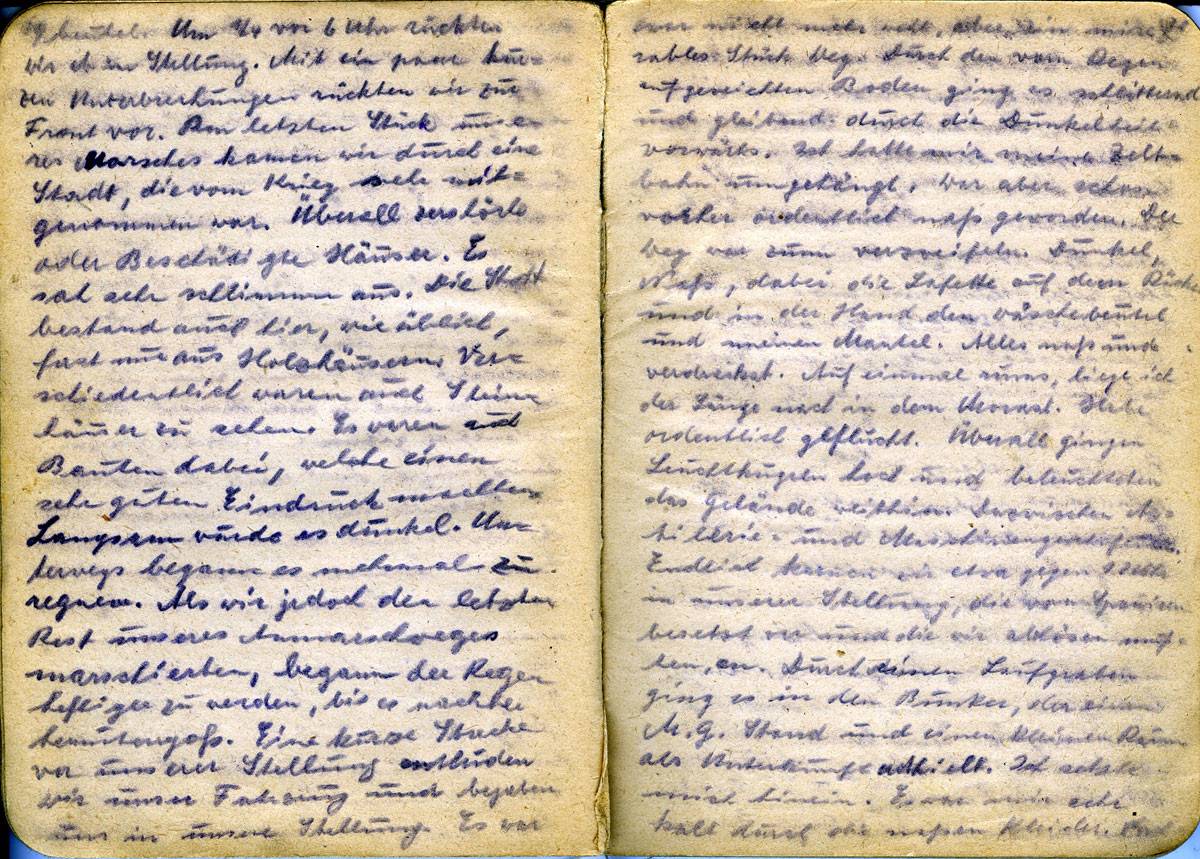 Um 1/4 vor 6 Uhr rückten
wir ab in Stellung. Mit ein paar kur-
zen Unterbrechungen rückten wir zur
Front vor. Am letzten Stück unse-
res Marsches kamen wir durch eine
Stadt, die vom Krieg sehr mit-
genommen war. Überall zerstörte
oder Beschädigte Häuser. Es
sah sehr schlimm aus. Die Stadt
bestand auch hier, wie üblich,
fast nur aus Holzhäusern. Ver-
schiedentlich waren auch Stein-
häuser zu sehen. Es waren auch
Bauten dabei, welche einen
sehr guten Eindruck machten.
Langsam würde es dunkel. Un-
terwegs begann es mehrmals zu
regnen. Als wir jedoch den letzten
Rest unseres Anmarschweges
marschierten, begann der Regen
heftiger zu werden, bis es nachher
heruntergoß. Eine kurze Strecke
vor unserer Stellung entluden
wir unser Fahrzeug und begaben
uns in unsere Stellung. Es war
zwar nicht mehr weit, aber ein mise-
rables Stück Weg. Durch den vom Regen
aufgeweichten Boden ging es schlitternd
und gleitend durch die Dunkelheit
vorwärts. Ich hatte mir meine Zelt-
bahn umgehängt, war aber schon
vorher ordentlich naß geworden. Der
Weg war zum verzweifeln. Dunkel,
Naß, dabei die Lafette auf dem Rücken
und in der Hand den Wäschebeutel
und meinen Mantel. Alles naß und
verdreckt. Auf einmal rums, liege ich
der Länge nach in dem Morast. Habe
ordentlich geflucht. Überall gingen
Leuchtkugeln hoch und beleuchteten
das Gelände weithin. Dazwischen Ar-
tillerie- und Maschinengewehrfeuer.
Endlich kamen wir etwa gegen Uhr
in unserer Stellung, die von Spaniern
besetzt war und die wir ablösen muß-
ten, an. Durch einen Laufgraben
ging es in den Bunker, der einen
M.G. Stand und einen kleinen Raum
als Unterkunft enthielt. Ich setzte
mich hinein. Es war mir sehr
kalt durch die naßen Kleider. Und